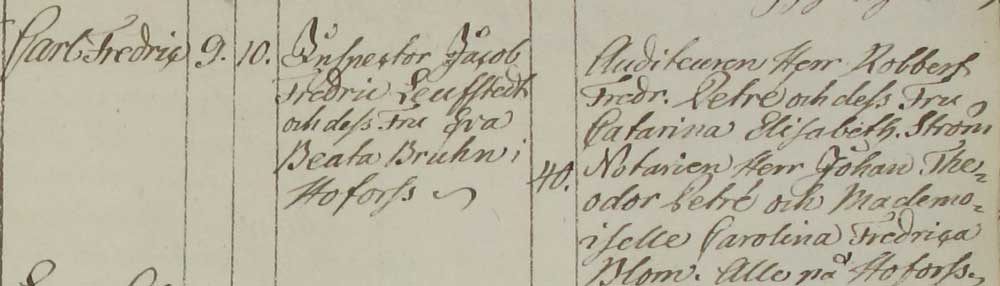 Carl Fredric
9.
10.
Inspector Jacob
Fredric Leufstedt
och dess Fru Eva
Beata Bruhn i
Hoforss
40.
Auditeuren Herr Robbert
Fredr. Petré och dess Fru
Catarina Elisabeth. Ström
Notarien Herr Johan The=
odor Petré och Mademo=
iselle Carolina Fredrica
Blom. Alle på Hoforss.